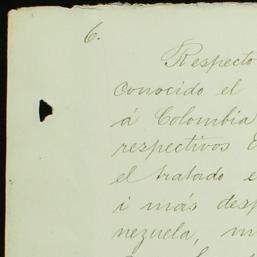 6.
Respecto
conocido el
á Colombia
respectivos
el tratado e
i más desp
nezuela, m